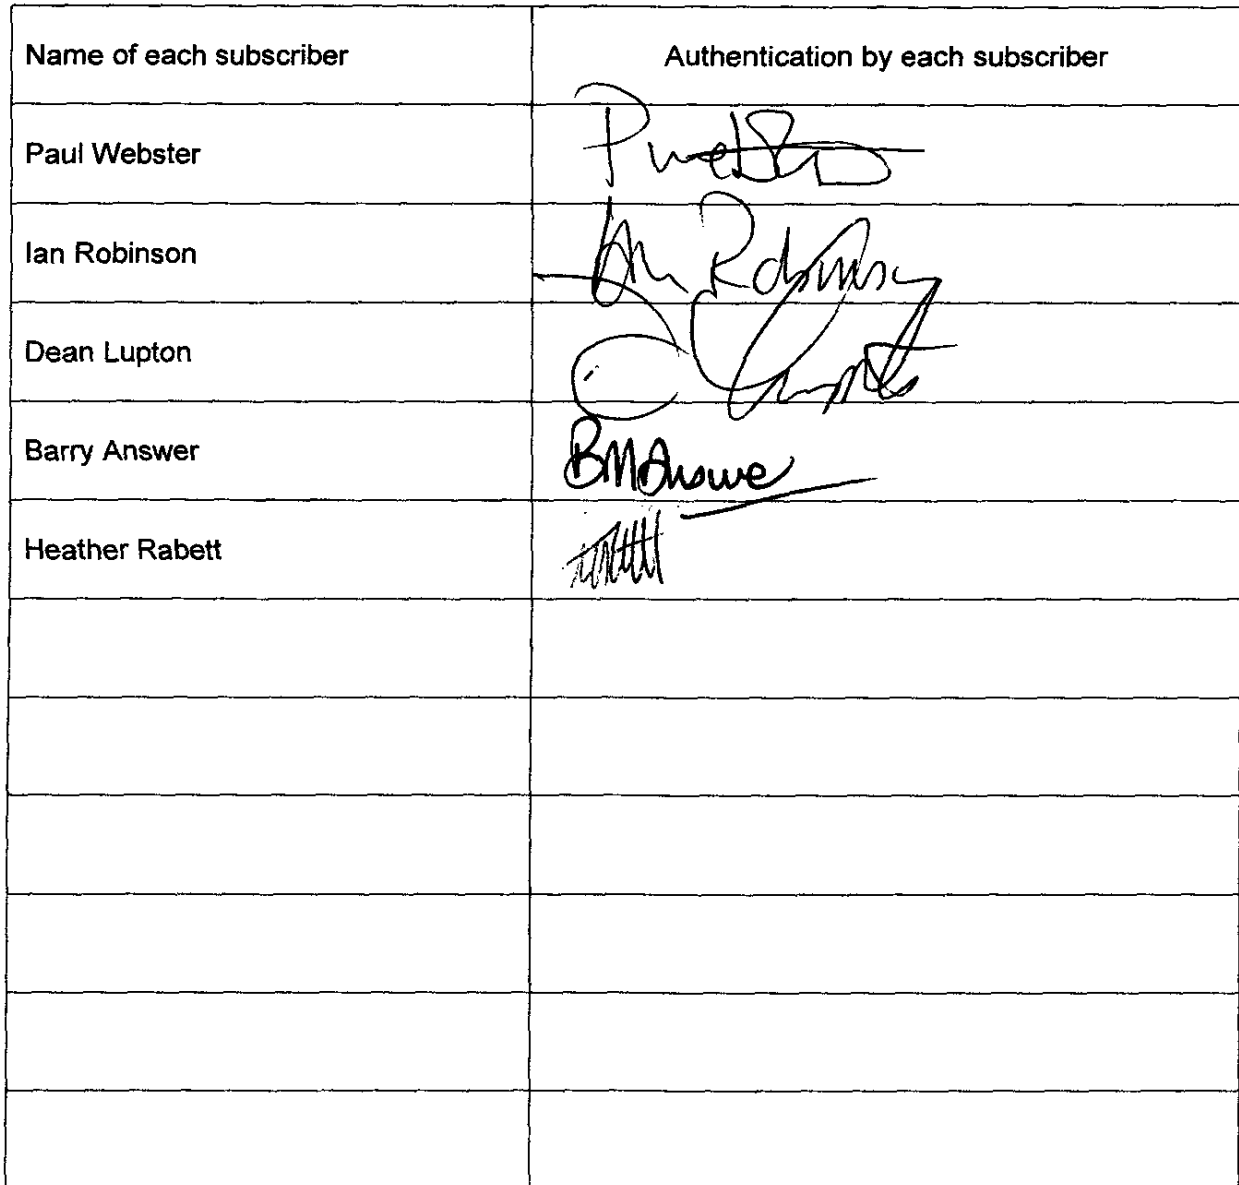 Name of each subscriber
Authentication by each subscriber
Paul Webster
Ian Robinson
Dean Lupton
Barry Answer
BMAnswe
Heather Rabett